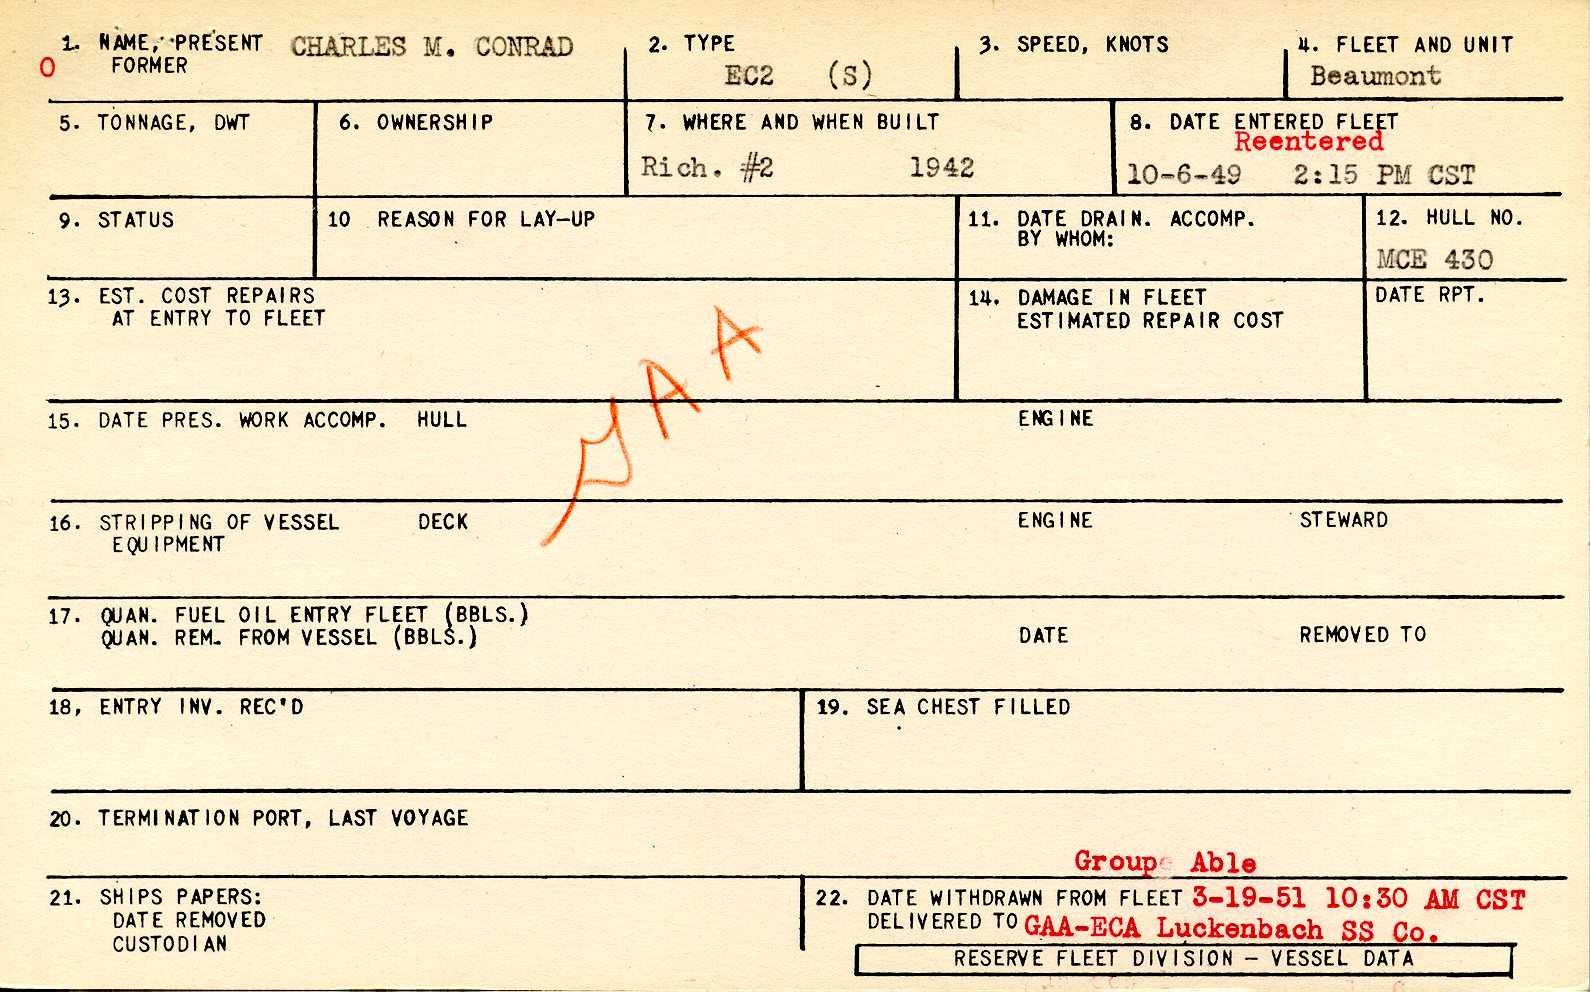 1. NAME, PRESENT CHARLES M. CONRAD
O FORMER
2. TYPE
EC2 (S)
3. SPEED, KNOTS
4. FLEET AND UNIT
Beaumont
5. TONNAGE, DWT
6. OWNERSHIP
7. WHERE AND WHEN BUILT
Rich. #2 1942
8. DATE ENTERED FLEET
Reentered
10-6-49 2:15 PM CST
9. STATUS
10 REASON FOR LAY-UP
11. DATE DRAIN. ACCOMP.
BY WHOM:
12. HULL NO.
MCE 430
13. EST. COST REPAIRS
AT ENTRY TO FLEET
14. DAMAGE IN FLEET
ESTIMATED REPAIR COST
DATE RPT.
GAA
15. DATE PRES. WORK ACCOMP. HULL ENGINE
16. STRIPPING OF VESSEL DECK ENGINE STEWARD
EQUIPMENT
17. QUAN. FUEL OIL ENTRY FLEET (BBLS.)
QUAN. REM. FROM VESSEL (BBLS.) DATE REMOVED TO
18, ENTRY INV. REC'D
19. SEA CHEST FILLED
20. TERMINATION PORT, LAST VOYAGE
Group Able
21. SHIPS PAPERS:
DATE REMOVED
CUSTODIAN
22. DATE WITHDRAWN FROM FLEET 3-19-51 10:30 AM CST
DELIVERED TO GAA-ECA Luckenbach SS Co.
RESERVE FLEET DIVISION - VESSEL DATA